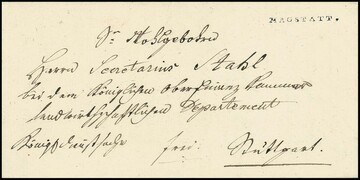 MAGSTATT.
Sr Wohlgeboren
Herrn Secretarius Stahl
bei dem Königlichen Oberfinanz Kammer
landwirthschaftlichen Departement
Königl. Dienstsache frei. Stuttgart.